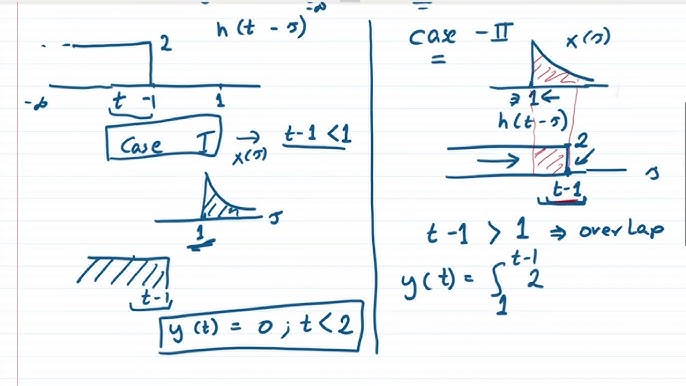 -∞
h(t - s)
2
-∞
t -1
1
Case I
→
x(s)
t-1 < 1
s
1
t-1
y(t) = 0 ; t < 2
=
case - II
=
x(s)
→ 1 ←
h(t-s)
2
→
s
t-1
t-1 > 1 ⇒ overlap
y(t) = ∫₁ᵗ⁻¹ 2